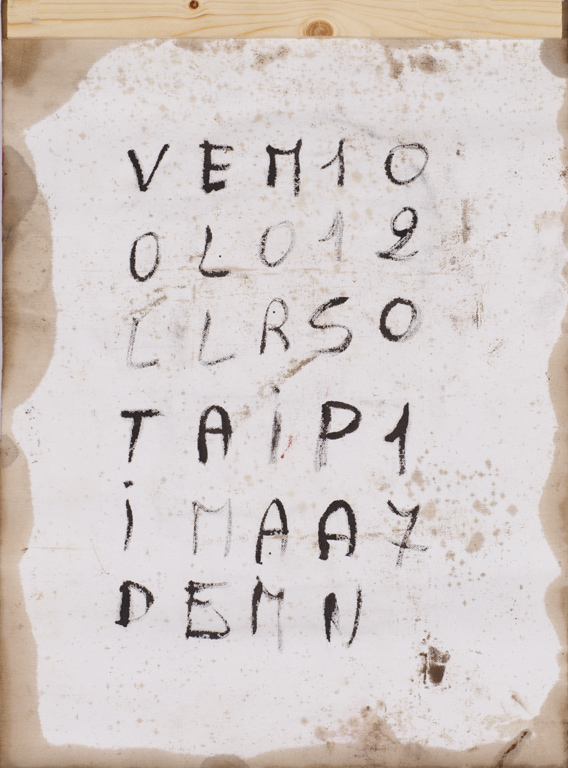 VEM10
OLO12
LLRSO
TAiP1
iMAA7
DEMN